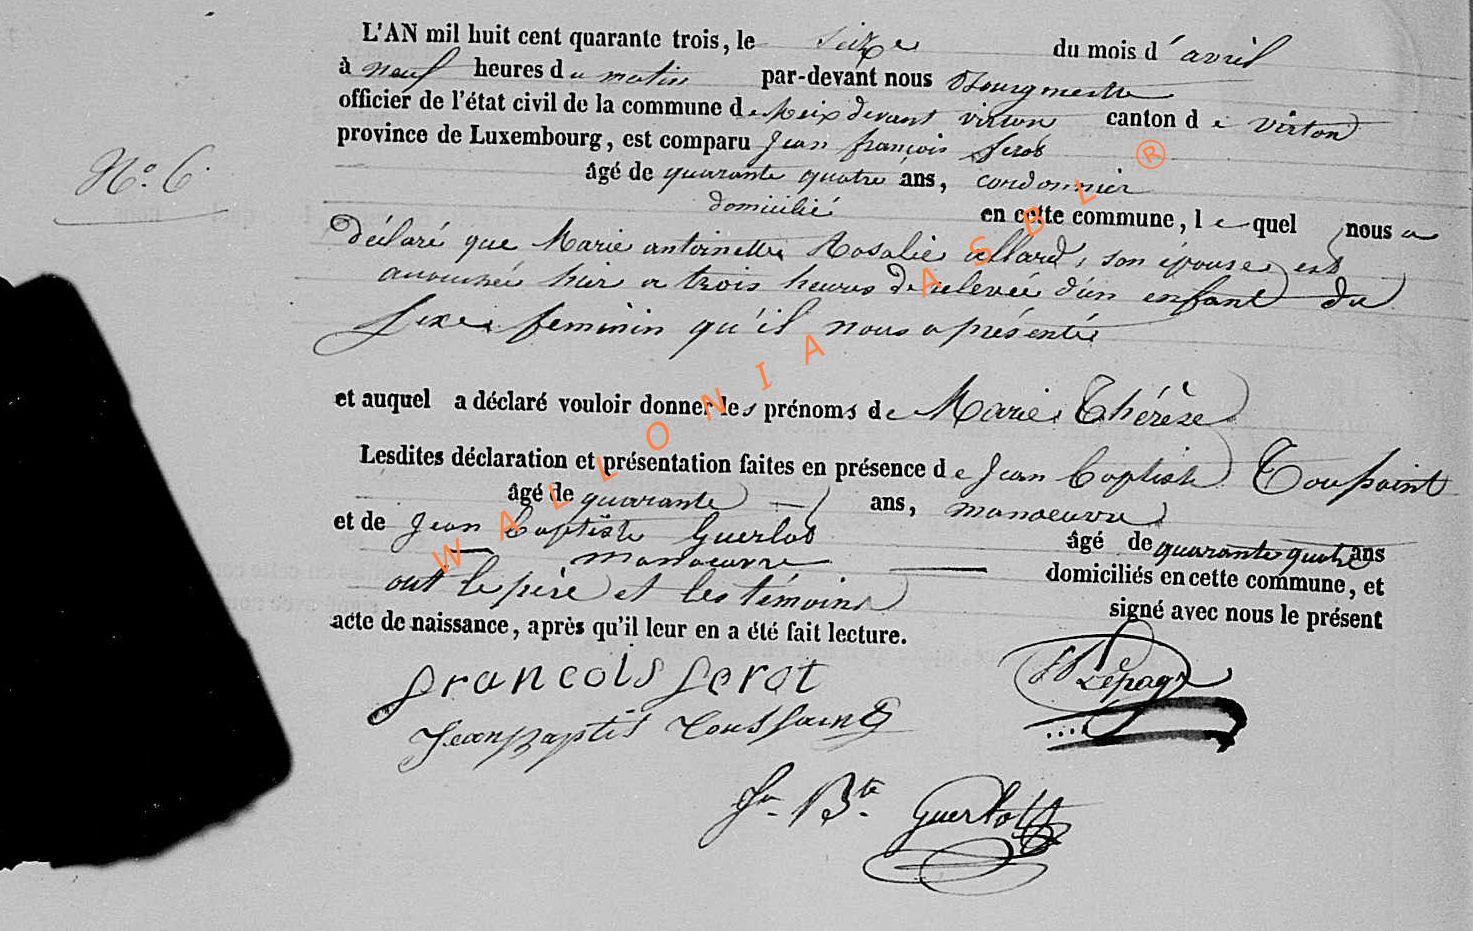 L'AN mil huit cent quarante trois, le seize du mois d'avril
à neuf heures du matin par-devant nous Bourgmestre
officier de l'état civil de la commune de Meix devant virton canton de virton
province de Luxembourg, est comparu Jean françois Serot
N° 6.
âgé de quarante quatre ans, cordonnier
domicilié en cette commune, lequel nous a
déclaré que Marie antoinette Rosalie allard, son épouse, est
accouchée hier a trois heures de relevée d'un enfant du
sexe feminin qu'il nous a présenté
et auquel a déclaré vouloir donner les prénoms de Marie Thérèse
Lesdites déclaration et présentation faites en présence de Jean Baptiste Toussaint
âgé de quarante ans, manoeuvre
et de Jean Baptiste Guerlot âgé de quarante quatre ans
manoeuvre domiciliés en cette commune, et
ont le père et les témoins signé avec nous le présent
acte de naissance, après qu'il leur en a été fait lecture.
francois serot Lepage
Jean baptis Toussaint
Jn Bte Guerlot
WALLONIA ASBL ®